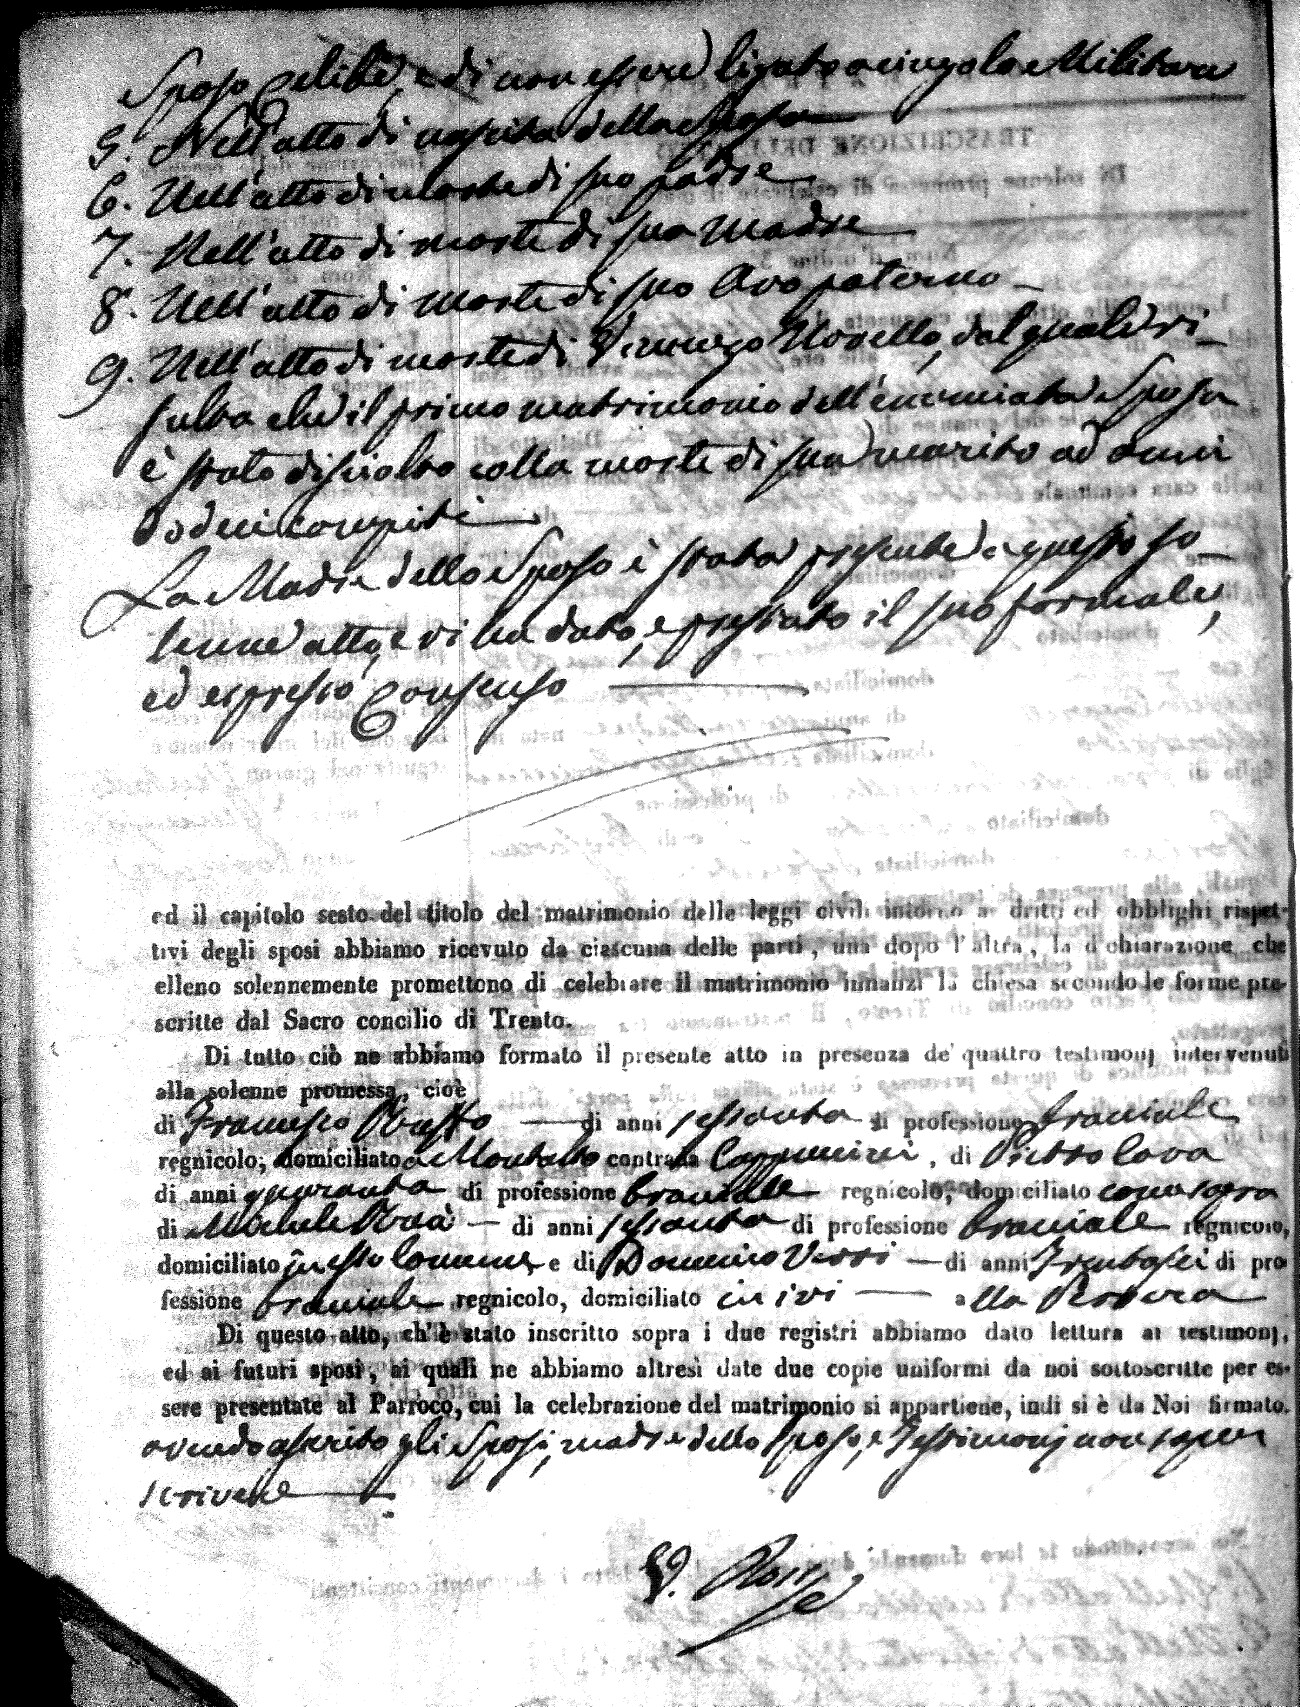 Sposo celibe, e di non essere ligato a cingolo Militare
5. Nell'atto di nascita della Sposa
6. Nell'atto di morte di suo padre
7. Nell'atto di morte di sua Madre
8. Nell'atto di morte di suo Avo paterno
9. Nell'atto di morte di Vincenzo Novello, dal quale ri-
sulta che il primo matrimonio dell'enunciata Sposa
è stato disciolto colla morte di suo marito ad anni
dodeci compiti
La Madre dello Sposo è stata presente a questo so-
lenne atto, e vi ha dato, e prestato il suo formale,
ed espresso Consenso
ed il capitolo sesto del titolo del matrimonio delle leggi civili intorno a' dritti ed obblighi rispet-
tivi degli sposi abbiamo ricevuto da ciascuna delle parti, una dopo l'altra, la dichiarazione, che
elleno solennemente promettono di celebrare il matrimonio innalzi la chiesa secondo le forme pre-
scritte dal Sacro concilio di Trento.
Di tutto ciò ne abbiamo formato il presente atto in presenza de' quattro testimonj intervenuti
alla solenne promessa, cioè
di Francesco di anni sessanta di professione bracciale
regnicolo, domiciliato a Montalto contrada Cappuccini, di Pietro Cava
di anni quaranta di professione bracciale regnicolo, domiciliato come sopra
di Michele di anni sessanta di professione bracciale regnicolo,
domiciliato in questo Comune e di Domenico di anni Trentasei di pro-
fessione bracciale regnicolo, domiciliato in ivi alla
Di questo atto, ch'è stato inscritto sopra i due registri abbiamo dato lettura ai testimonj,
ed ai futuri sposi, ai quali ne abbiamo altresì date due copie uniformi da noi sottoscritte per es-
sere presentate al Parroco, cui la celebrazione del matrimonio si appartiene, indi si è da Noi firmato.
avendo asserito gli Sposi, madre dello Sposo, e Testimonj non saper
scrivere